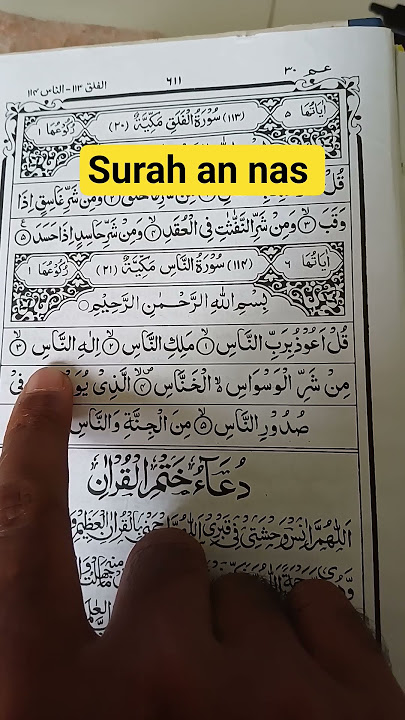 عـم ٣٠
٦١١
الفلق ١١٣ - الناس ١١٤
اٰيَاتُهَا ٥
(١١٣) سُوْرَةُ الْفَلَقِ مَكِّيَّةٌ (٢٠)
رُكُوْعُهَا ١
Surah an nas
قُلْ
وَمِنْ شَرِّ غَاسِقٍ اِذَا
وَقَبَ ۙ﴿٣﴾ وَمِنْ شَرِّ النَّفّٰثٰتِ فِى الْعُقَدِ ۙ﴿٤﴾ وَمِنْ شَرِّ حَاسِدٍ اِذَا حَسَدَ ﴿٥﴾
اٰيَاتُهَا ٦
(١١٤) سُوْرَةُ النَّاسِ مَكِّيَّةٌ (٢١)
رُكُوْعُهَا ١
بِسْمِ اللهِ الرَّحْمٰنِ الرَّحِيْمِ
قُلْ اَعُوْذُ بِرَبِّ النَّاسِ ۙ﴿١﴾ مَلِكِ النَّاسِ ۙ﴿٢﴾ اِلٰهِ النَّاسِ ۙ﴿٣﴾
مِنْ شَرِّ الْوَسْوَاسِ ۙ الْخَنَّاسِ ۙ﴿٤﴾ الَّذِىْ فِىْ
صُدُوْرِ النَّاسِ ۙ﴿٥﴾ مِنَ الْجِنَّةِ وَالنَّاسِ
دُعَآءُ خَتْمِ الْقُرْاٰنِ
اَللّٰهُمَّ اٰنِسْ وَحْشَتِىْ فِىْ قَبْرِىْ اَللّٰهُمَّ ارْحَمْنِىْ بِالْقُرْاٰنِ الْعَظِيْمِ